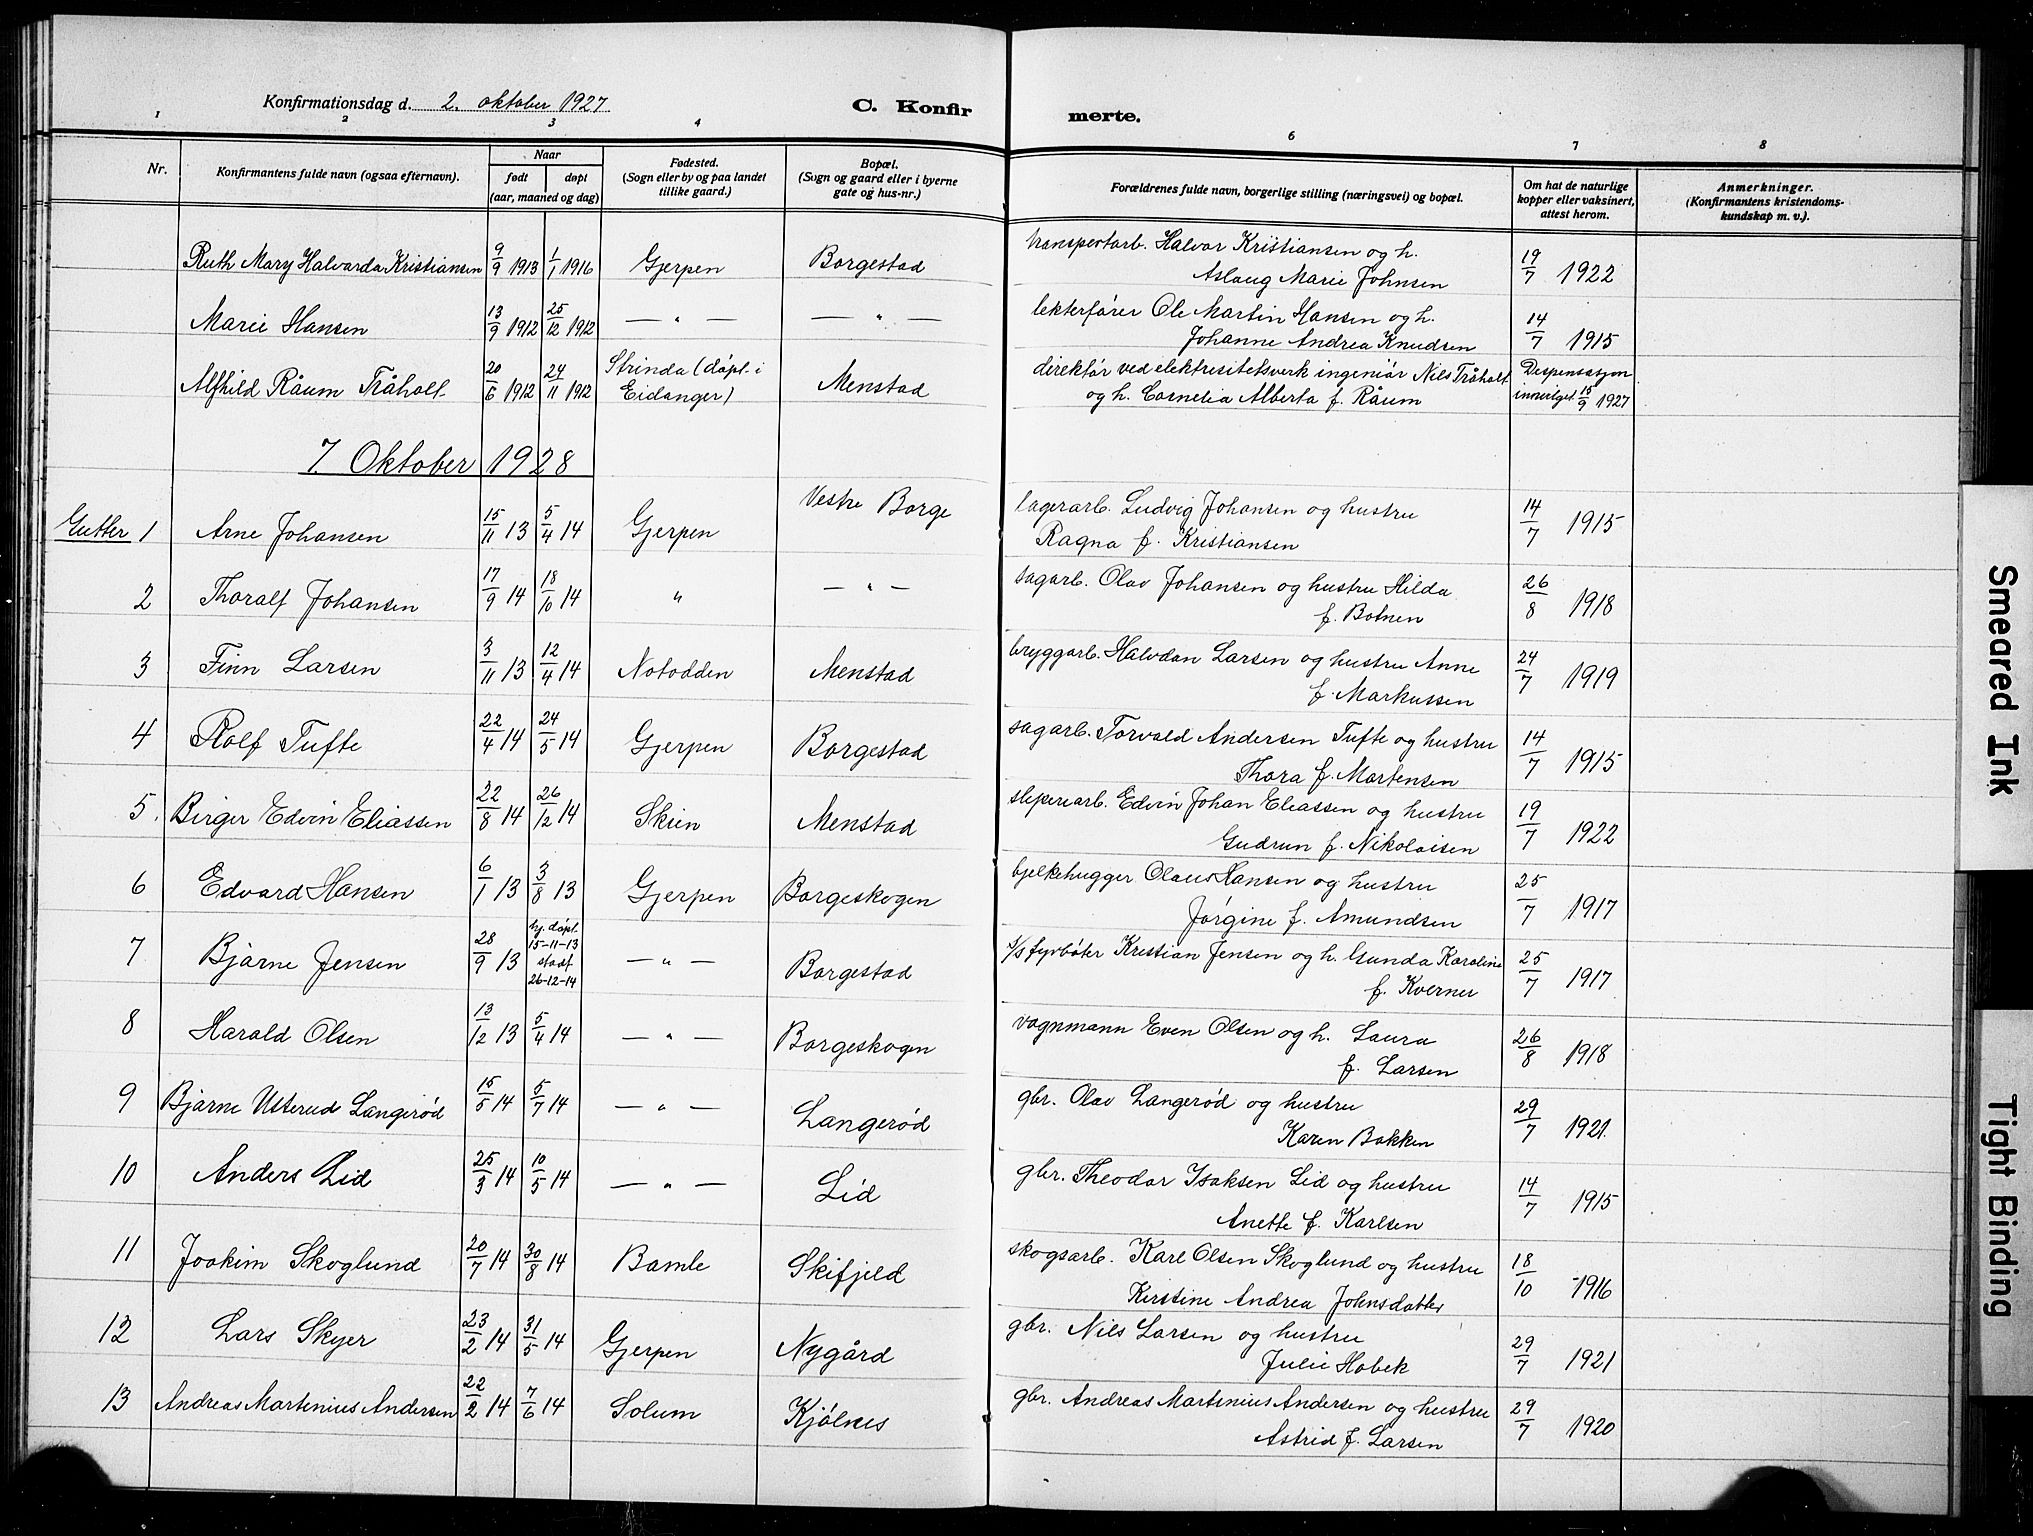 Konfirmationsdag d. 2. oktober 1927
C. Konfirmerte.
1 2 3 4 6 7 8
Nr. Konfirmantens fulde navn (ogsaa efternavn). Naar født døpt (aar, maaned og dag) Fødested. (Sogn eller by og paa landet tillike gaard.) Bopæl. (Sogn og gaard eller i byerne gate og hus-nr.) Forældrenes fulde navn, borgerlige stilling (næringsvei) og bopæl. Om hat de naturlige kopper eller vaksinert, attest herom. Anmerkninger. (Konfirmantens kristendomskundskap m. v.).
Ruth Mary Halvarda Kristiansen 9/9 1913 1/1 1916 Gjerpen Borgestad transportarb. Halvor Kristiansen og h. 19/7 1922
Aslaug Marie Johnsen
Marie Hansen 13/9 1912 25/12 1912 — " — — " — lekterfører Ole Martin Hansen og h. 14/7 1915
Johanne Andrea Knudsen
Alfhild Råum Tråholt 20/6 1912 24/11 1912 Strinda (døpt i Eidanger) Menstad direktør ved elektrisitetsverk ingeniør Nils Tråholt Dispensasjon
og h. Cornelia Alberta f. Råum innvilget 15/9 1927
7 Oktober 1928
Gutter 1 Arne Johansen 15/11 13 5/4 14 Gjerpen Vestre Borge lagerarb. Ludvig Johansen og hustru 14/7 1915
Ragna f. Kristiansen
2 Thoralf Johansen 17/9 14 18/10 14 " — " — sagarb. Olav Johansen og hustru Hilda 26/8 1918
f. Botnen
3 Finn Larsen 3/11 13 12/4 14 Notodden Menstad bryggarb. Halvdan Larsen og hustru Anne 24/7 1919
f. Markussen
4 Rolf Tufte 22/4 14 24/5 14 Gjerpen Borgestad sagarb. Torvald Andersen Tufte og hustru 14/7 1915
Thora f. Martensen
5. Birger Edvin Eliassen 22/8 14 26/12 14 Skien Menstad sliperiarb. Edvin Johan Eliassen og hustru 19/7 1922
Gudrun f. Nikolaisen
6 Edvard Hansen 6/1 13 3/8 13 Gjerpen Borgeskogen bjelkehugger Olaus Hansen og hustru 25/7 1917
Jørgine f. Amundsen
7 Bjarne Jensen 28/9 13 hj. døpt 15-11-13 stadf 26-12-14 — " — Borgestad s/s fyrbøter Kristian Jensen og h. Gunda Karoline 25/7 1917
f. Kverner
8 Harald Olsen 13/12 13 5/4 14 — " — Borgeskogn vognmann Even Olsen og h. Laura 26/8 1918
f. Larsen
9 Bjarne Usterud Langerød 15/5 14 5/7 14 — " — Langerød gbr. Olav Langerød og hustru 29/7 1921.
Karen Bakken
10 Anders Lid 25/3 14 10/5 14 — " — Lid gbr. Theodor Isaksen Lid og hustru 14/7 1915
Anette f. Karlsen
11 Joakim Skoglund 20/7 14 30/8 14 Bamle Skifjeld skogsarb. Karl Olsen Skoglund og hustru 18/10 1916
Kirstine Andrea Johnsdatter
12 Lars Skyer 23/2 14 31/5 14 Gjerpen Nygård gbr. Nils Larsen og hustru 29/7 1921
Julie Hobek
13 Andreas Martinius Andersen 22/2 14 7/6 14 Solum Kjølnes gbr. Andreas Martinius Andersen og hustru 29/7 1920
Astrid f. Larsen
Smeared Ink
Tight Binding